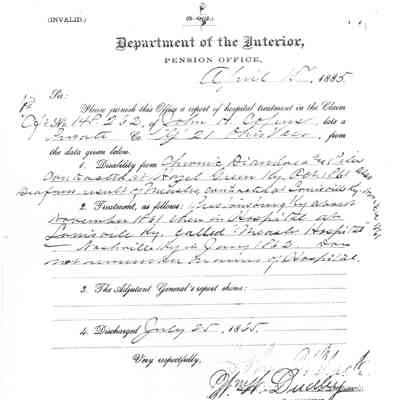 (INVALID.)
Department of the Interior,
PENSION OFFICE,
April 15, 1885
Sir:
Please furnish this Office a report of hospital treatment in the Claim
No. 148 232, of John H. late a
Private Co. 21 Ohio from
the data given below.
1. Disability from Chronic Diarrhoea & Piles
Contracted at Hazel Green Ky Oct 1861 also
Deafness result of Measles contracted at Louisville Ky.
2. Treatment, as follows: Ky about
November 1861 then in Hospital at
Louisville Ky. called Measles Hospital
Nashville in Jany 1862. Does
not remember names of Hospital.
3. The Adjutant General's report shows:
4. Discharged July 25, 1865.
Very respectfully,
Wm. W. Dudley